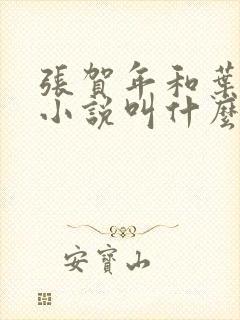 張賀年和葉
小說叫什麼
安寶山